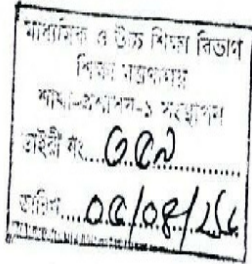 মাধ্যমিক ও উচ্চ শিক্ষা বিভাগ
শিক্ষা মন্ত্রণালয়
শাখা-প্রশাসন-১ সংস্থাপন
ডাইরী নং... ৩৫৯
তারিখ... ০৫/০৪/২৬